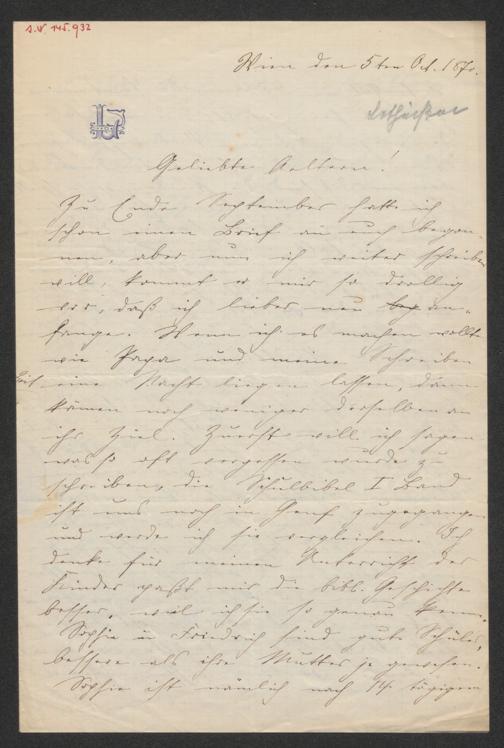 Wien den 5ten Oct. 187
Geliebte Aeltern!
Zu Ende September hatte ich
schon einen Brief an euch begon-
nen, aber nun ich weiter schreiben
will, kommt er mir so drollig
vor, daß ich lieber neu an-
fange. Wenn ich es machen wollte
wie Papa und meine Schreiben
eine Nacht liegen lassen, dann
kämen noch weniger derselben an
ihr Ziel. Zuerst will ich sagen
was so oft vergessen wurde zu
schreiben, die Schulbibel I Band
ist uns noch in Genf zugegangen
und werde ich sie vergleichen. Ich
denke für meinen Unterricht der
Kinder paßt mir die bibl. Geschichte
besser, weil ich sie so genau kenne.
Sophie u Friedrich sind gute Schüler,
bessere als ihre Mutter je gewesen.
Sophie ist nämlich nach 14 tägigem